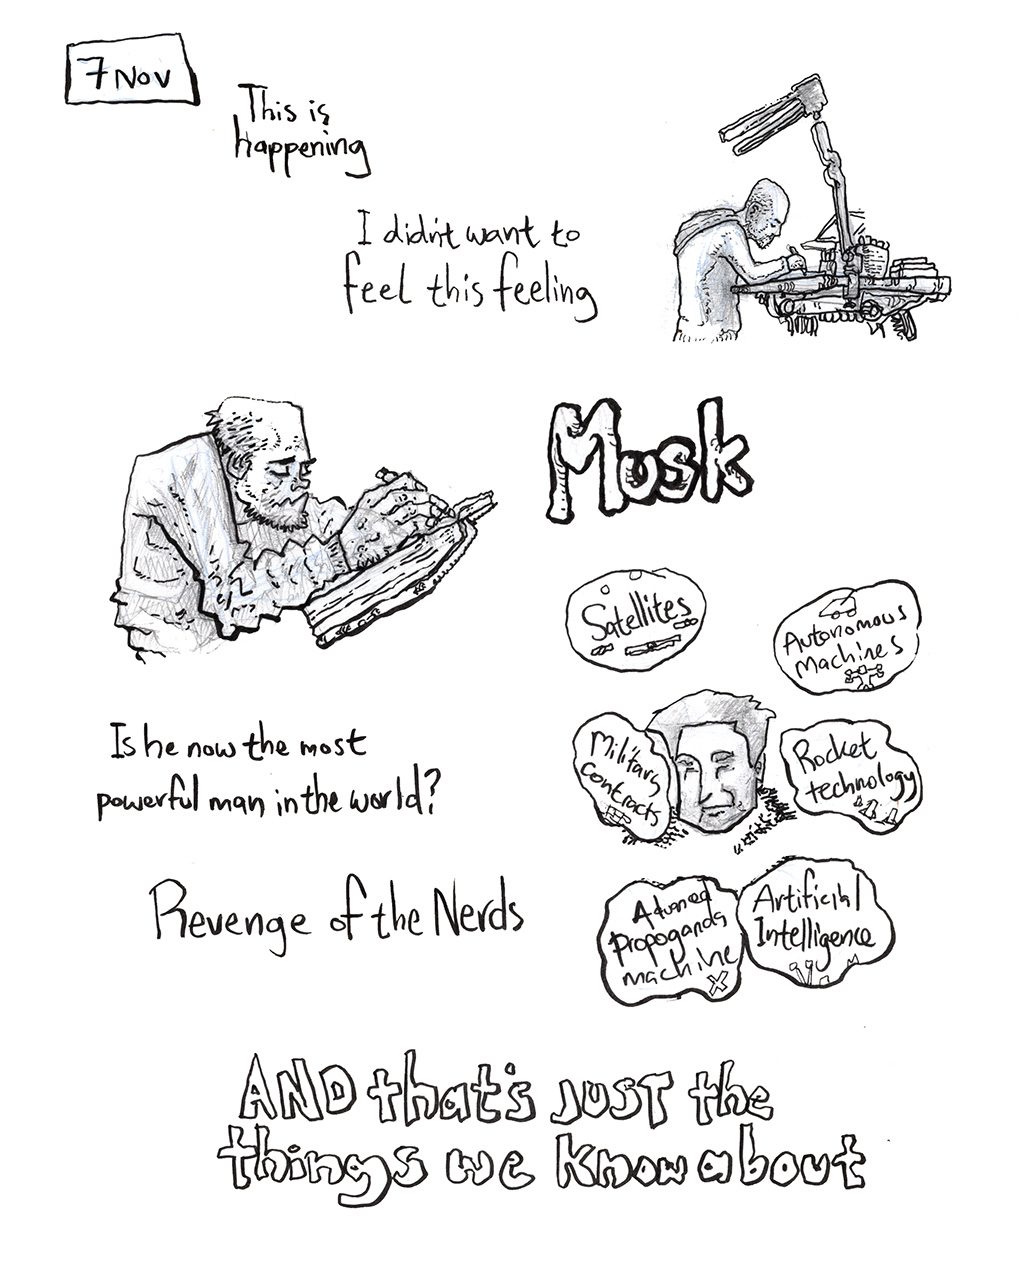 7 Nov
This is
happening
I didn't want to
feel this feeling
Musk
Satellites
Autonomous
machines
Military
contracts
Rocket
technology
Is he now the most
powerful man in the world?
Revenge of the Nerds
Advanced
Propoganda
machine
X
Artificial
Intelligence
AND that's JUST the
things we know about